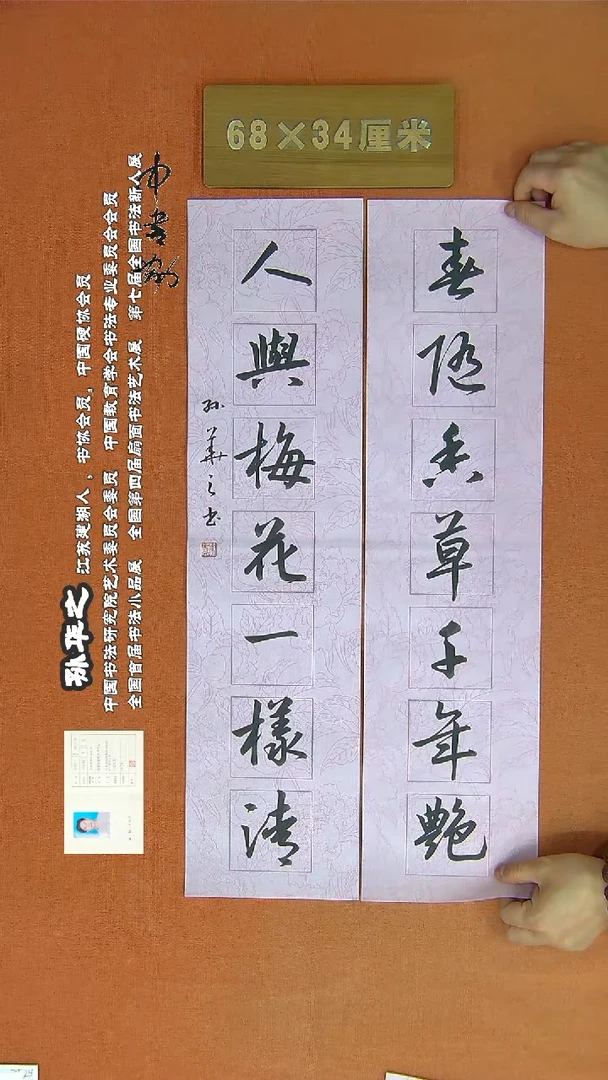 68×34厘米
春随香草千年艶
人與梅花一樣清
孙華之书
孙华之 江苏建湖人，书协会员，中国硬协会员
中国书法研究院艺术委员会委员 中国教育学会书法专业委员会会员
全国首届书法小品展 全国第四届扇面书法艺术展 第七届全国书法新人展